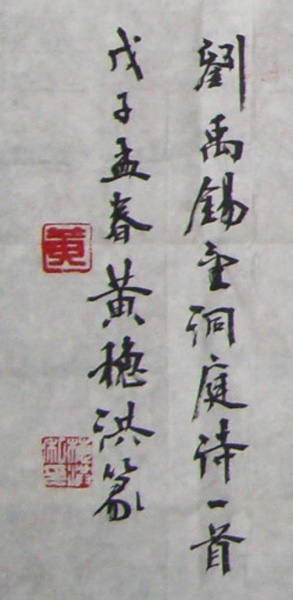 劉禹錫望洞庭詩一首
戊子孟春黃穗洪篆
黃